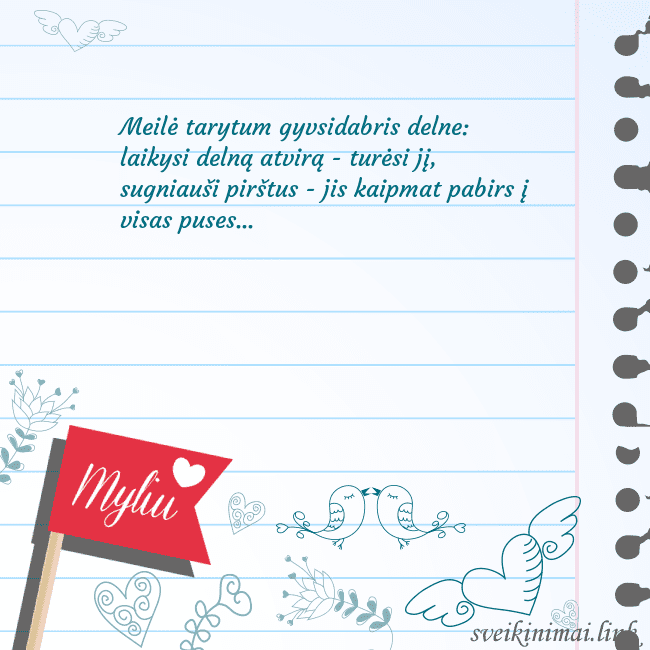 Meilė tarytum gyvsidabris delne:
laikysi delną atvirą - turėsi jį,
sugniauši pirštus - jis kaipmat pabirs į
visas puses...
Myliu
sveikinimai.link